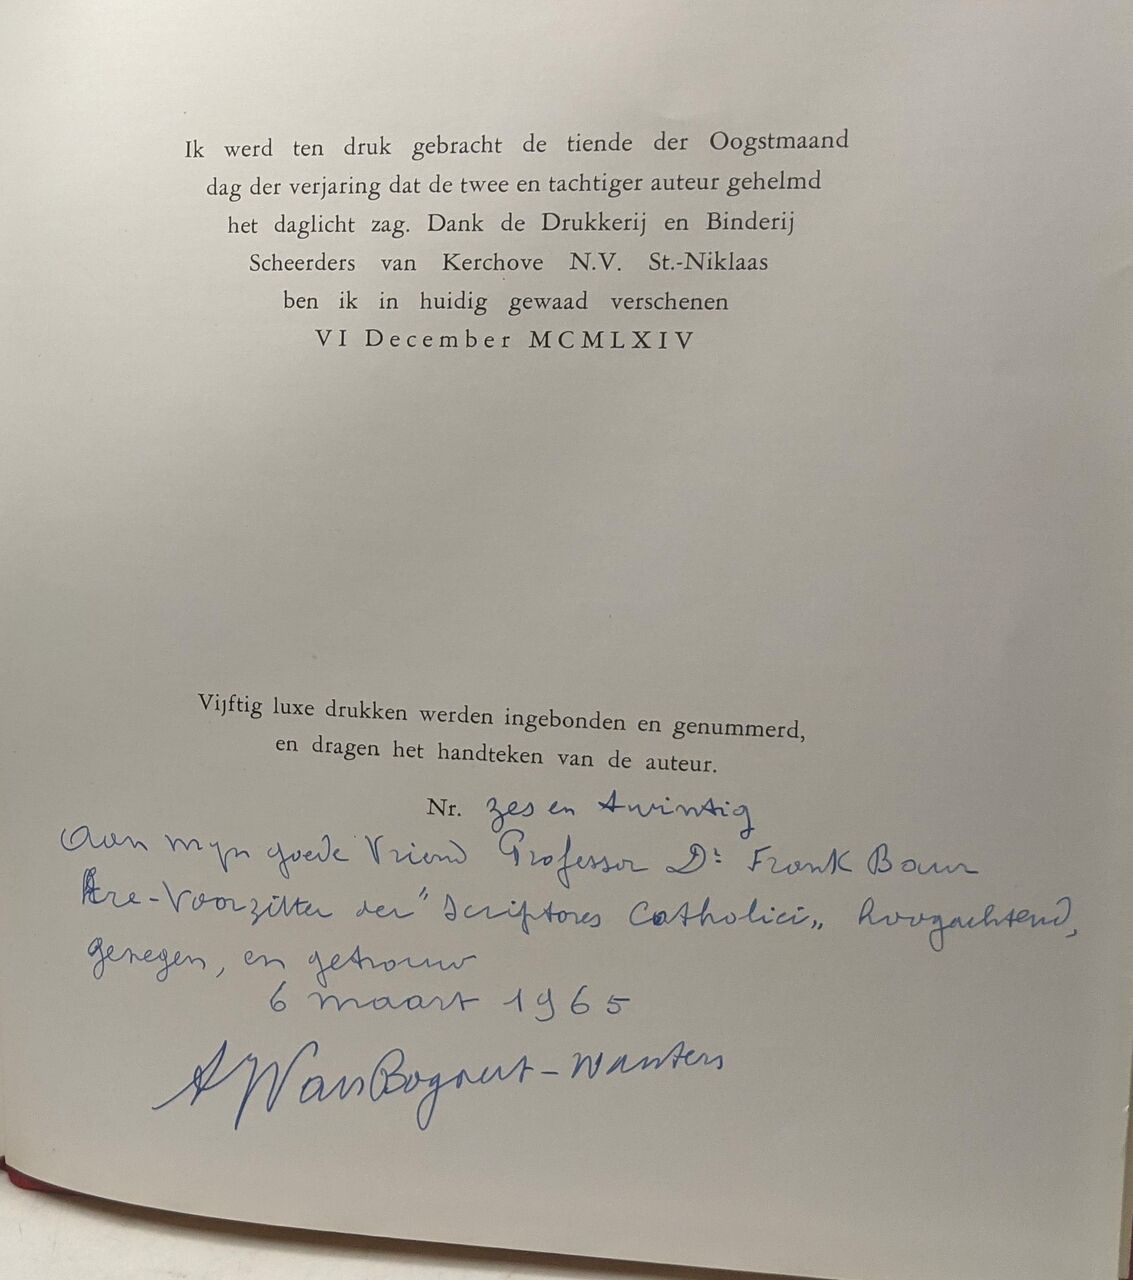 Ik werd ten druk gebracht de tiende der Oogstmaand
dag der verjaring dat de twee en tachtiger auteur gehelmd
het daglicht zag. Dank de Drukkerij en Binderij
Scheerders van Kerchove N.V. St.-Niklaas
ben ik in huidig gewaad verschenen
VI December MCMLXIV
Vijftig luxe drukken werden ingebonden en genummerd,
en dragen het handteken van de auteur.
Nr. zes en twintig
Aan mijn goede Vriend Professor Dr Frank Baur
Ere-Voorzitter der "Scriptores Catholici„ hoogachtend,
genegen, en getrouw
6 maart 1965
A Van Bogaert-Wauters